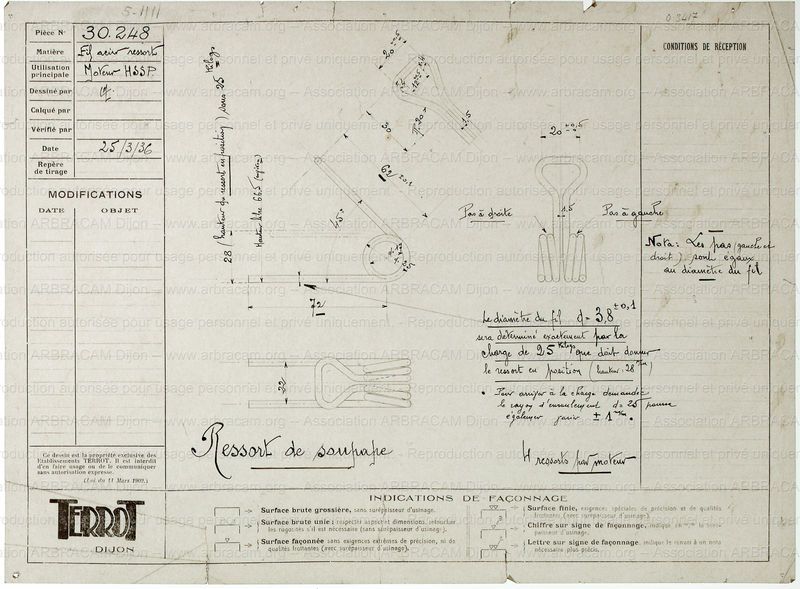 5-1111
Pièce N° 30.248
Matière Fil acier ressort
Utilisation principale Moteur HSSP.
Dessiné par
Calqué par
Vérifié par
Date 25/3/36
Repère de tirage
MODIFICATIONS
DATE OBJET
Ce dessin est la propriété exclusive des
Etablissements TERROT. Il est interdit
d'en faire usage ou de le communiquer
sans autorisation expresse.
(Loi du 11 Mars 1902.)
TERROT
DIJON
CONDITIONS DE RÉCEPTION
28 (hauteur du ressort en position) sous 25 kilogs
Hauteur libre 66.5
45°
72
22
20 ± 0,5
Pas à droite
Pas à gauche
Nota: Les pas (gauche et
droit) sont égaux
au diamètre du fil
Le diamètre du fil d= 3,8 ±0,1
sera déterminé exactement par la
charge de 25 kilogs que doit donner
le ressort en position (hauteur 28 m/m)
• Pour arriver à la charge demandée
le rayon d'enroulement d= 25 pourra
également varier ± 1 m/m.
Ressort de soupape
4 ressorts par moteur
INDICATIONS DE FAÇONNAGE
Surface brute grossière, sans surépaisseur d'usinage.
Surface brute unie; respecter aspect et dimensions, retoucher
les ragosités s'il est nécessaire (sans surépaisseur d'usinage).
Surface façonnée sans exigences extrêmes de précision, ni de
qualités frottantes (avec surépaisseur d'usinage).
Surface finie, exigences spéciales de précision et de qualités
frottantes (avec surépaisseur d'usinage).
Chiffre sur signe de façonnage,
Lettre sur signe de façonnage, indique le renvoi à un nota
nécessaire plus précis.
Reproduction autorisée pour usage personnel et privé uniquement. – Association ARBRACAM Dijon – www.arbracam.org